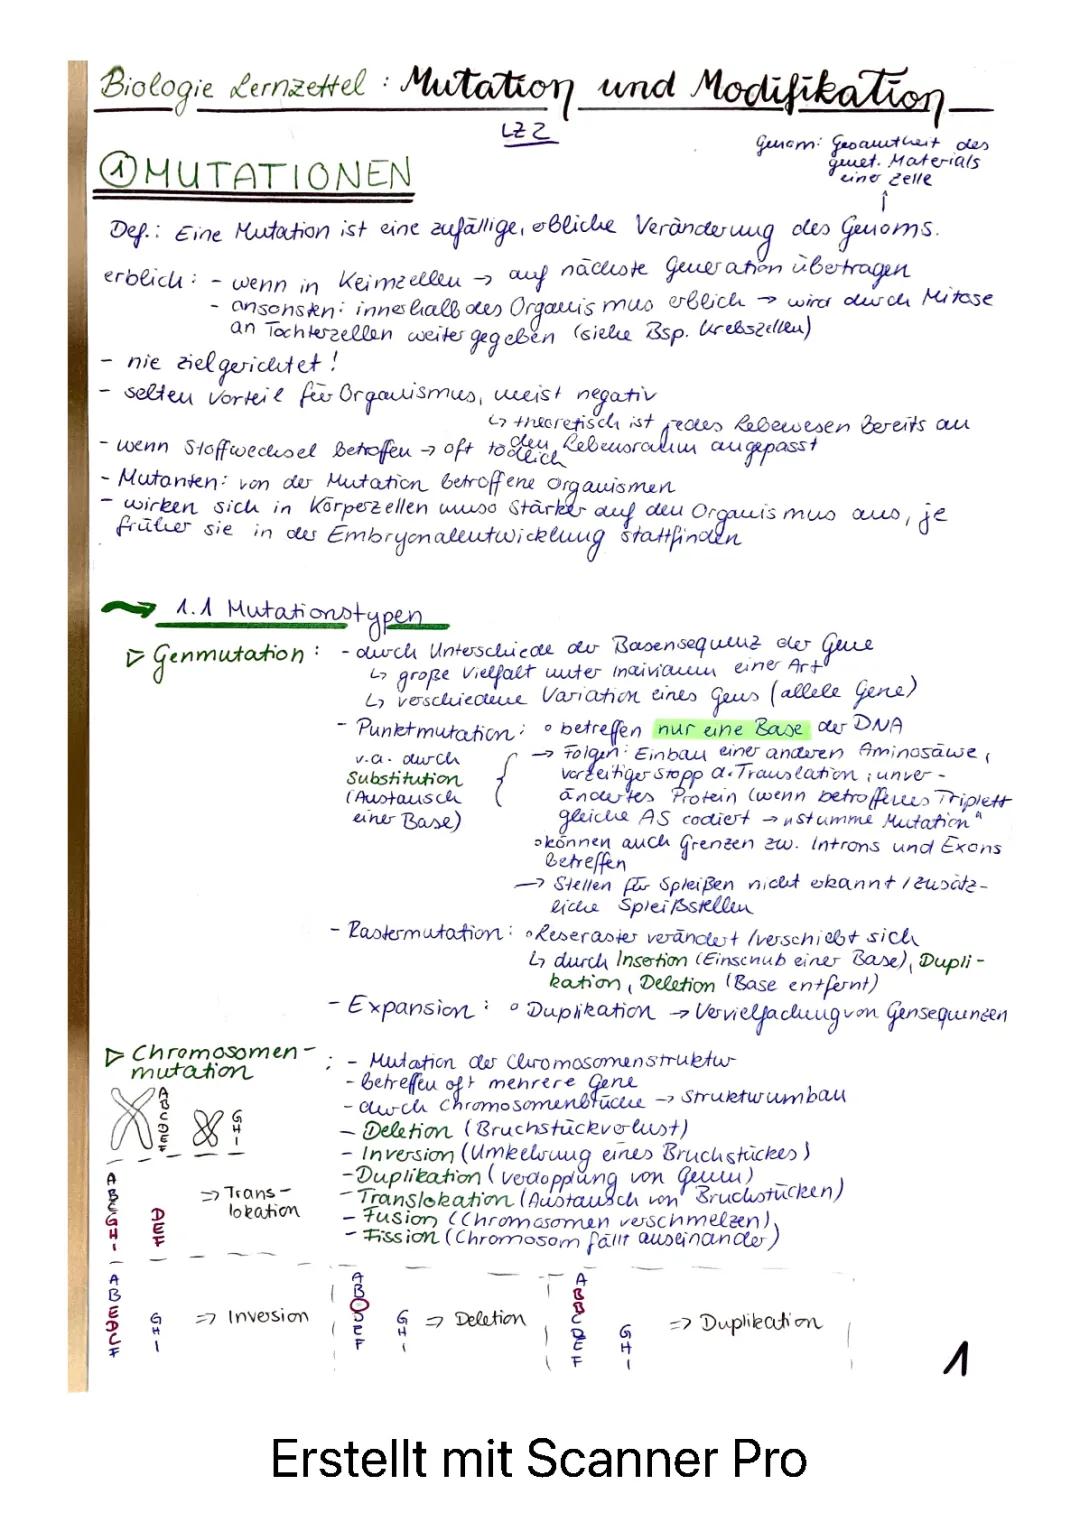 Biologie Lernzettel: Mutation und Modifikation
LZ 2
Genom: Gesamtheit des
genet. Materials
einer Zelle
① MUTATIONEN
Def.: Eine Mutation ist eine zufällige, erbliche Veränderung des Genoms.
erblich: - wenn in Keimzellen → auf nächste Generation übertragen
- ansonsten: innerhalb des Organismus erblich → wird durch Mitose
an Tochterzellen weitergegeben (siehe Bsp. Krebszellen)
- nie zielgerichtet!
- selten Vorteil für Organismus, meist negativ
↳ theoretisch ist jedes Lebewesen bereits an
den Lebensraum angepasst
- wenn Stoffwechsel betroffen → oft tödlich
- Mutanten: von der Mutation betroffene Organismen
- wirken sich in Körperzellen umso stärker auf den Organismus aus, je
früher sie in der Embryonalentwicklung stattfinden
1.1 Mutationstypen
▷ Genmutation: - durch Unterschiede der Basensequenz der Gene
↳ große Vielfalt unter Individuen einer Art
↳ verschiedene Variation eines Gens (allele Gene)
- Punktmutation: ∘ betreffen nur eine Base der DNA
v.a. durch
Substitution
(Austausch
einer Base)
→ Folgen: Einbau einer anderen Aminosäure,
vorzeitiger Stopp d. Translation, unver-
ändertes Protein (wenn betroffenes Triplett
gleiche AS codiert → "stumme Mutation"
∘ können auch Grenzen zw. Introns und Exons
betreffen
→ Stellen für Spleißen nicht erkannt / zusätz-
liche Spleißstellen
- Rastermutation: ∘ Leseraster verändert / verschiebt sich
↳ durch Insertion (Einschub einer Base), Dupli-
kation, Deletion (Base entfernt)
- Expansion: ∘ Duplikation → Vervielfachung von Gensequenzen
▷ Chromosomen-
mutation
: - Mutation der Chromosomenstruktur
- betreffen oft mehrere Gene
- durch Chromosomenbrüche → Strukturumbau
- Deletion (Bruchstückverlust)
- Inversion (Umkehrung eines Bruchstückes)
- Duplikation (Verdopplung von Genen)
- Translokation (Austausch von Bruchstücken)
- Fusion (Chromosomen verschmelzen)
- Fission (Chromosom fällt auseinander)
ABCDEF GHI
ABCGHI DEF ⇒ Trans-
lokation
ABEDCF GHI ⇒ Inversion
GHI ⇒ Deletion
ABBCDEF GHI ⇒ Duplikation
1
Erstellt mit Scanner Pro